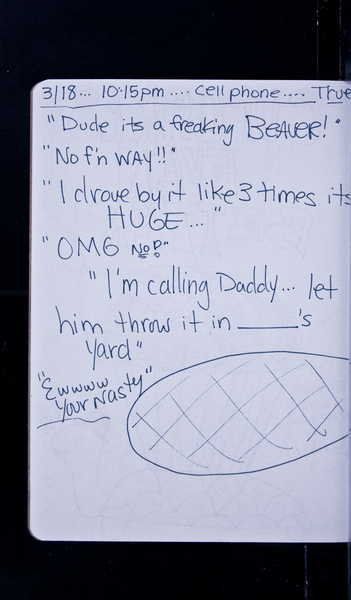 3/18... 10:15pm .... cell phone.... Thue
"Dude its a freaking BEAVER!"
"No f'n WAY!!"
"I drove by it like 3 times its
HUGE ..."
"OMG NO?!"
"I'm calling Daddy... let
him throw it in ______'s
yard"
"Ewwww
your nasty"